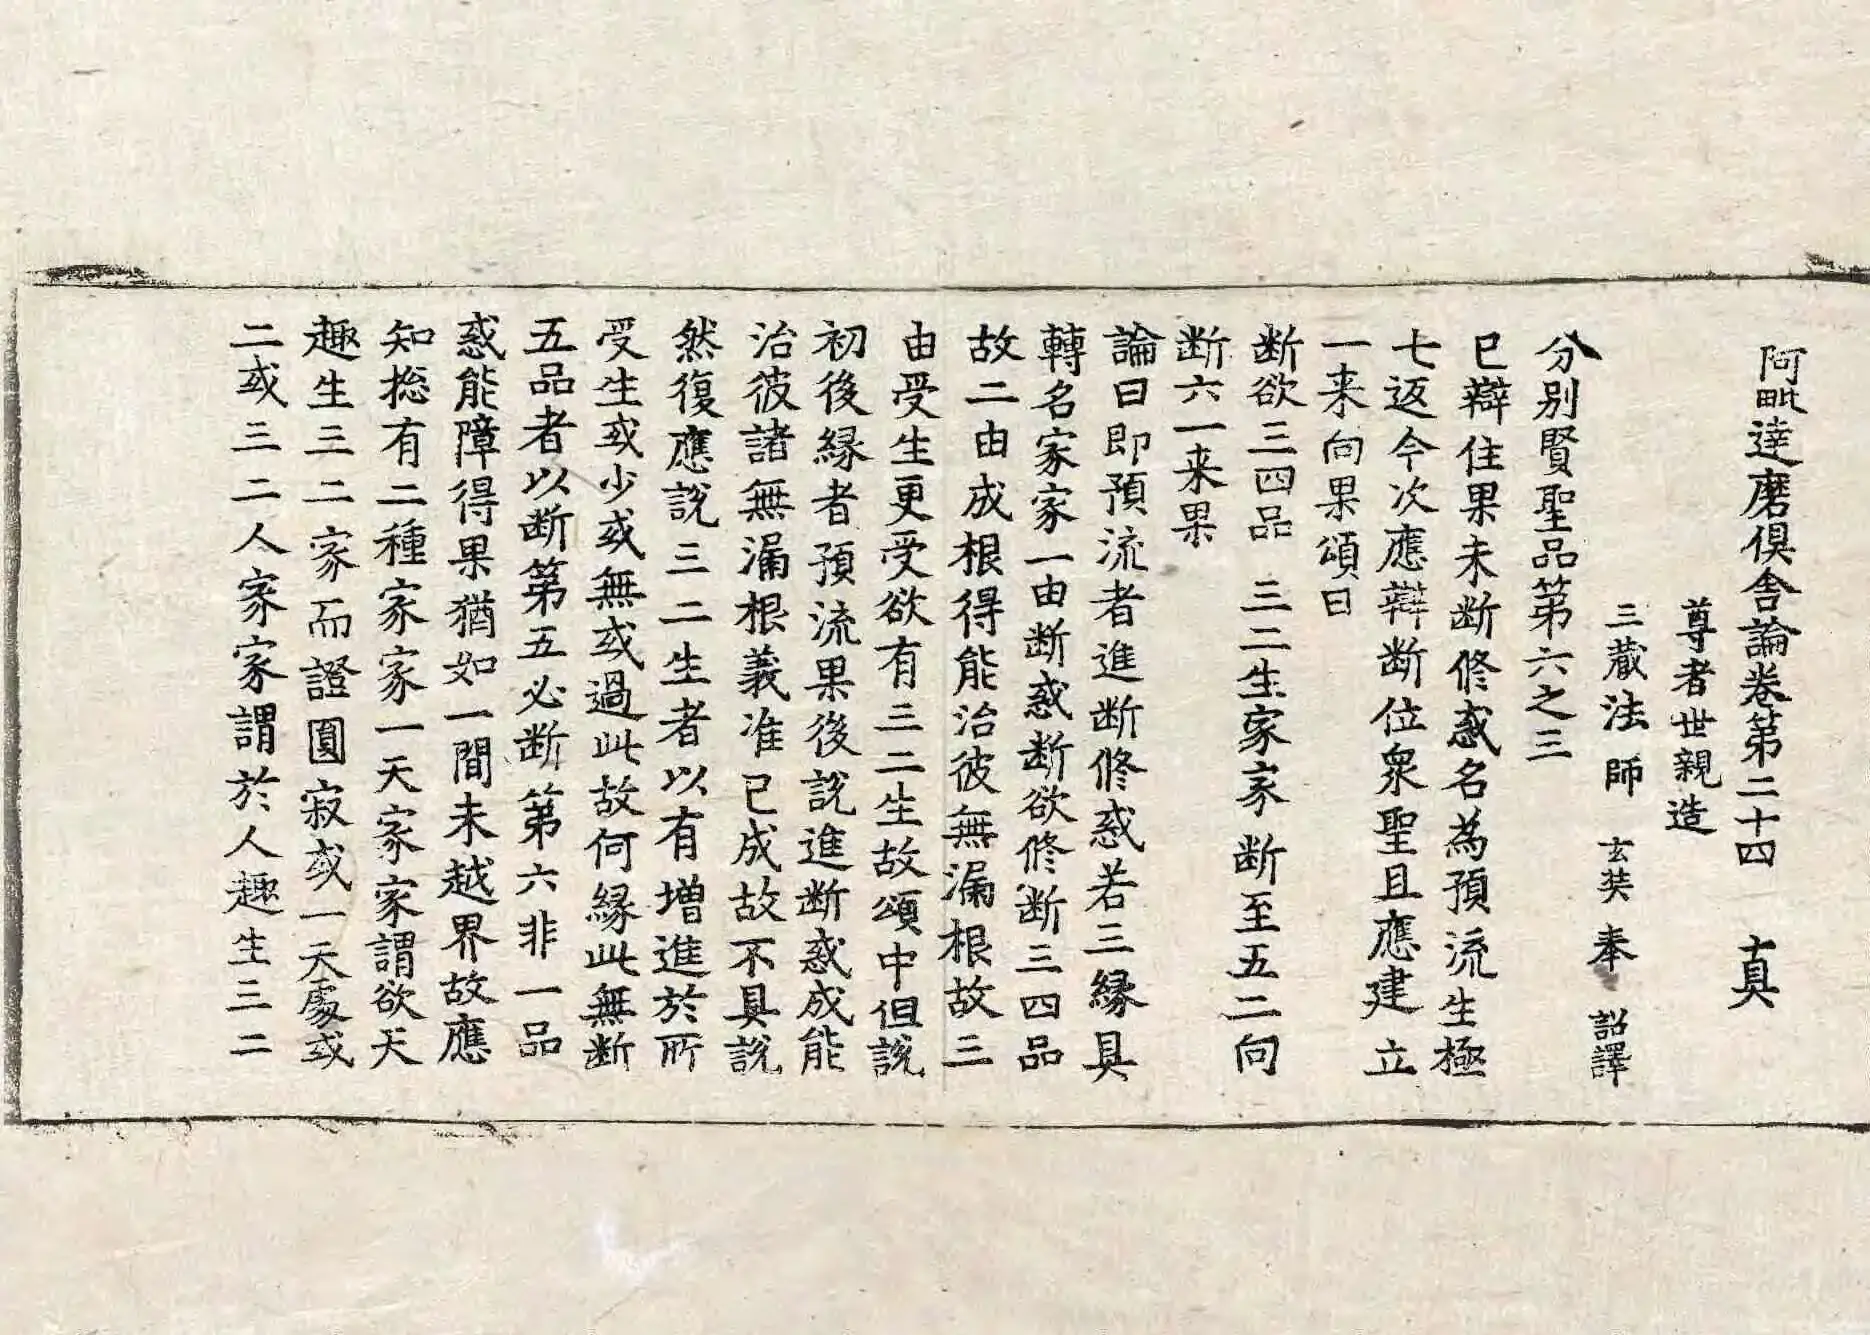 阿毗達磨俱舍論卷第二十四 真
尊者世親造
三藏法師 玄奘奉 詔譯
分別賢聖品第六之三
已辯住果未斷修惑名為預流生極
七返今次應辯斷位衆聖且應建立
一来向果頌曰
断欲三四品 三二生家家 断至五二向
断六一来果
論曰即預流者進断修惑若三緣具
轉名家家一由断惑断欲修断三四品
故二由成根得能治彼無漏根故三
由受生更受欲有三二生故頌中但說
初後緣者預流果後說進断惑成能
治彼諸無漏根義准已成故不具說
然復應說三二生者以有增進於所
受生或少或無或過此故何緣此無断
五品者以断第五必断第六非一品
惑能障得果猶如一間未越界故應
知捴有二種家家一天家家謂欲天
趣生三二家而證圓寂或一天處或
二或三二人家家謂於人趣生三二